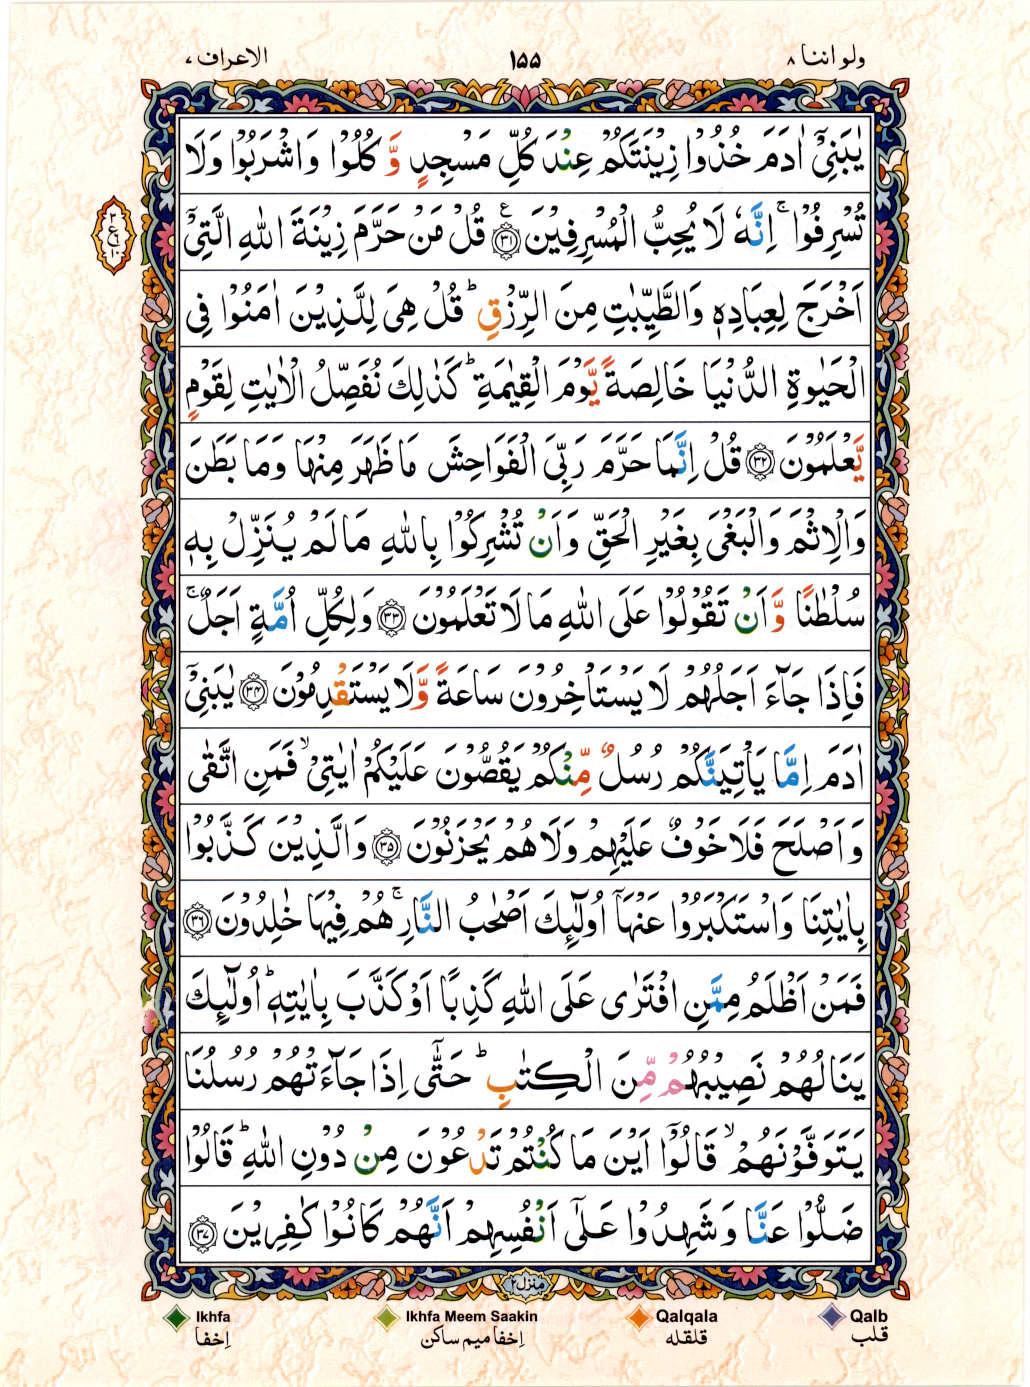 ولو اننا ٨ ١٥٥ الاعراف ٧
يٰبَنِيْۤ اٰدَمَ خُذُوْا زِيْنَتَكُمْ عِنْدَ كُلِّ مَسْجِدٍ وَّ كُلُوْا وَاشْرَبُوْا وَلَا
تُسْرِفُوْا ۚ اِنَّهٗ لَا يُحِبُّ الْمُسْرِفِيْنَ ۧ﴿٣١﴾ قُلْ مَنْ حَرَّمَ زِيْنَةَ اللّٰهِ الَّتِيْۤ
اَخْرَجَ لِعِبَادِهٖ وَالطَّيِّبٰتِ مِنَ الرِّزْقِ ؕ قُلْ هِيَ لِلَّذِيْنَ اٰمَنُوْا فِى
الْحَيٰوةِ الدُّنْيَا خَالِصَةً يَّوْمَ الْقِيٰمَةِ ؕ كَذٰلِكَ نُفَصِّلُ الْاٰيٰتِ لِقَوْمٍ
يَّعْلَمُوْنَ ﴿٣٢﴾ قُلْ اِنَّمَا حَرَّمَ رَبِّىَ الْفَوَاحِشَ مَا ظَهَرَ مِنْهَا وَمَا بَطَنَ
وَالْاِثْمَ وَالْبَغْىَ بِغَيْرِ الْحَقِّ وَاَنْ تُشْرِكُوْا بِاللّٰهِ مَا لَمْ يُنَزِّلْ بِهٖ
سُلْطٰنًا وَّاَنْ تَقُوْلُوْا عَلَى اللّٰهِ مَا لَا تَعْلَمُوْنَ ﴿٣٣﴾ وَلِكُلِّ اُمَّةٍ اَجَلٌ ۚ
فَاِذَا جَآءَ اَجَلُهُمْ لَا يَسْتَاْخِرُوْنَ سَاعَةً وَّلَا يَسْتَقْدِمُوْنَ ﴿٣٤﴾ يٰبَنِيْۤ
اٰدَمَ اِمَّا يَاْتِيَنَّكُمْ رُسُلٌ مِّنْكُمْ يَقُصُّوْنَ عَلَيْكُمْ اٰيٰتِيْ ۙ فَمَنِ اتَّقٰى
وَاَصْلَحَ فَلَا خَوْفٌ عَلَيْهِمْ وَلَا هُمْ يَحْزَنُوْنَ ﴿٣٥﴾ وَالَّذِيْنَ كَذَّبُوْا
بِاٰيٰتِنَا وَاسْتَكْبَرُوْا عَنْهَاۤ اُولٰٓئِكَ اَصْحٰبُ النَّارِ ۚ هُمْ فِيْهَا خٰلِدُوْنَ ﴿٣٦﴾
فَمَنْ اَظْلَمُ مِمَّنِ افْتَرٰى عَلَى اللّٰهِ كَذِبًا اَوْ كَذَّبَ بِاٰيٰتِهٖ ؕ اُولٰٓئِكَ
يَنَالُهُمْ نَصِيْبُهُمْ مِّنَ الْكِتٰبِ ؕ حَتّٰٓى اِذَا جَآءَتْهُمْ رُسُلُنَا
يَتَوَفَّوْنَهُمْ ۙ قَالُوْۤا اَيْنَ مَا كُنْتُمْ تَدْعُوْنَ مِنْ دُوْنِ اللّٰهِ ؕ قَالُوْا
ضَلُّوْا عَنَّا وَشَهِدُوْا عَلٰٓى اَنْفُسِهِمْ اَنَّهُمْ كَانُوْا كٰفِرِيْنَ ﴿٣٧﴾
منزل ٢
Ikhfa Ikhfa Meem Saakin Qalqala Qalb
اِخفا اِخفا میم ساکن قلقله قلب